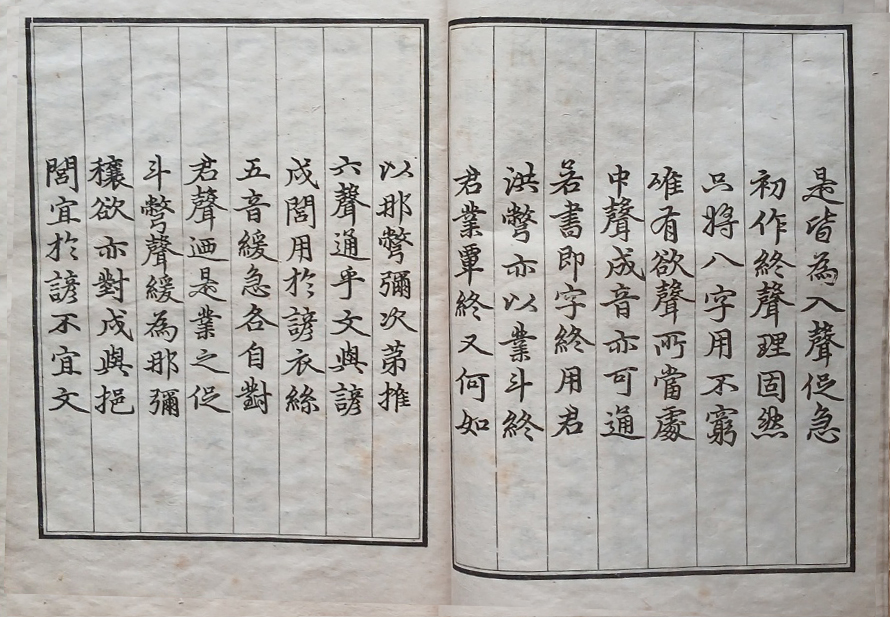 是皆為入聲促急
初作終聲理固然
只將八字用不窮
唯有欲聲所當處
中聲成音亦可通
若書即字終用君
洪彆亦以業斗終
君業覃終又何如
以那彆彌次第推
六聲通乎文與諺
戌閭用於諺衣絲
五音緩急各自對
君聲迺是業之促
斗彆聲緩為那彌
穰欲亦對戌與挹
閭宜於諺不宜文